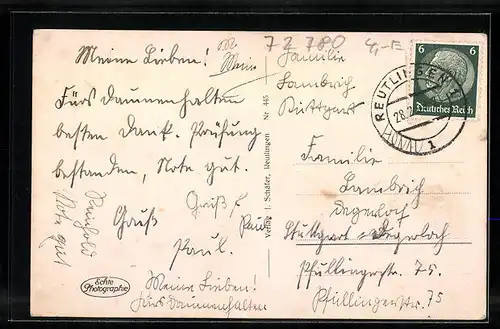 Meine Lieben!
Fürs Daumenhalten
besten Dank. Prüfung
bestanden, Note gut.
Gruß
Paul.
Reinhold
Note gut
Gruß
Paul
Meine Lieben!
Fürs Daumenhalten
Echte
Photographie
Verlag J. Schäfer, Reutlingen Nr 445
Meine
72780
4,-E
Familie
Lambrich
Stuttgart
Familie
Lambrich
Degerloch
Stuttgart-Degerloch
Pfullingerstr. 75.
Pfullingerstr. 75
REUTLINGEN 1
28.
1
6 6
Deutsches Reich